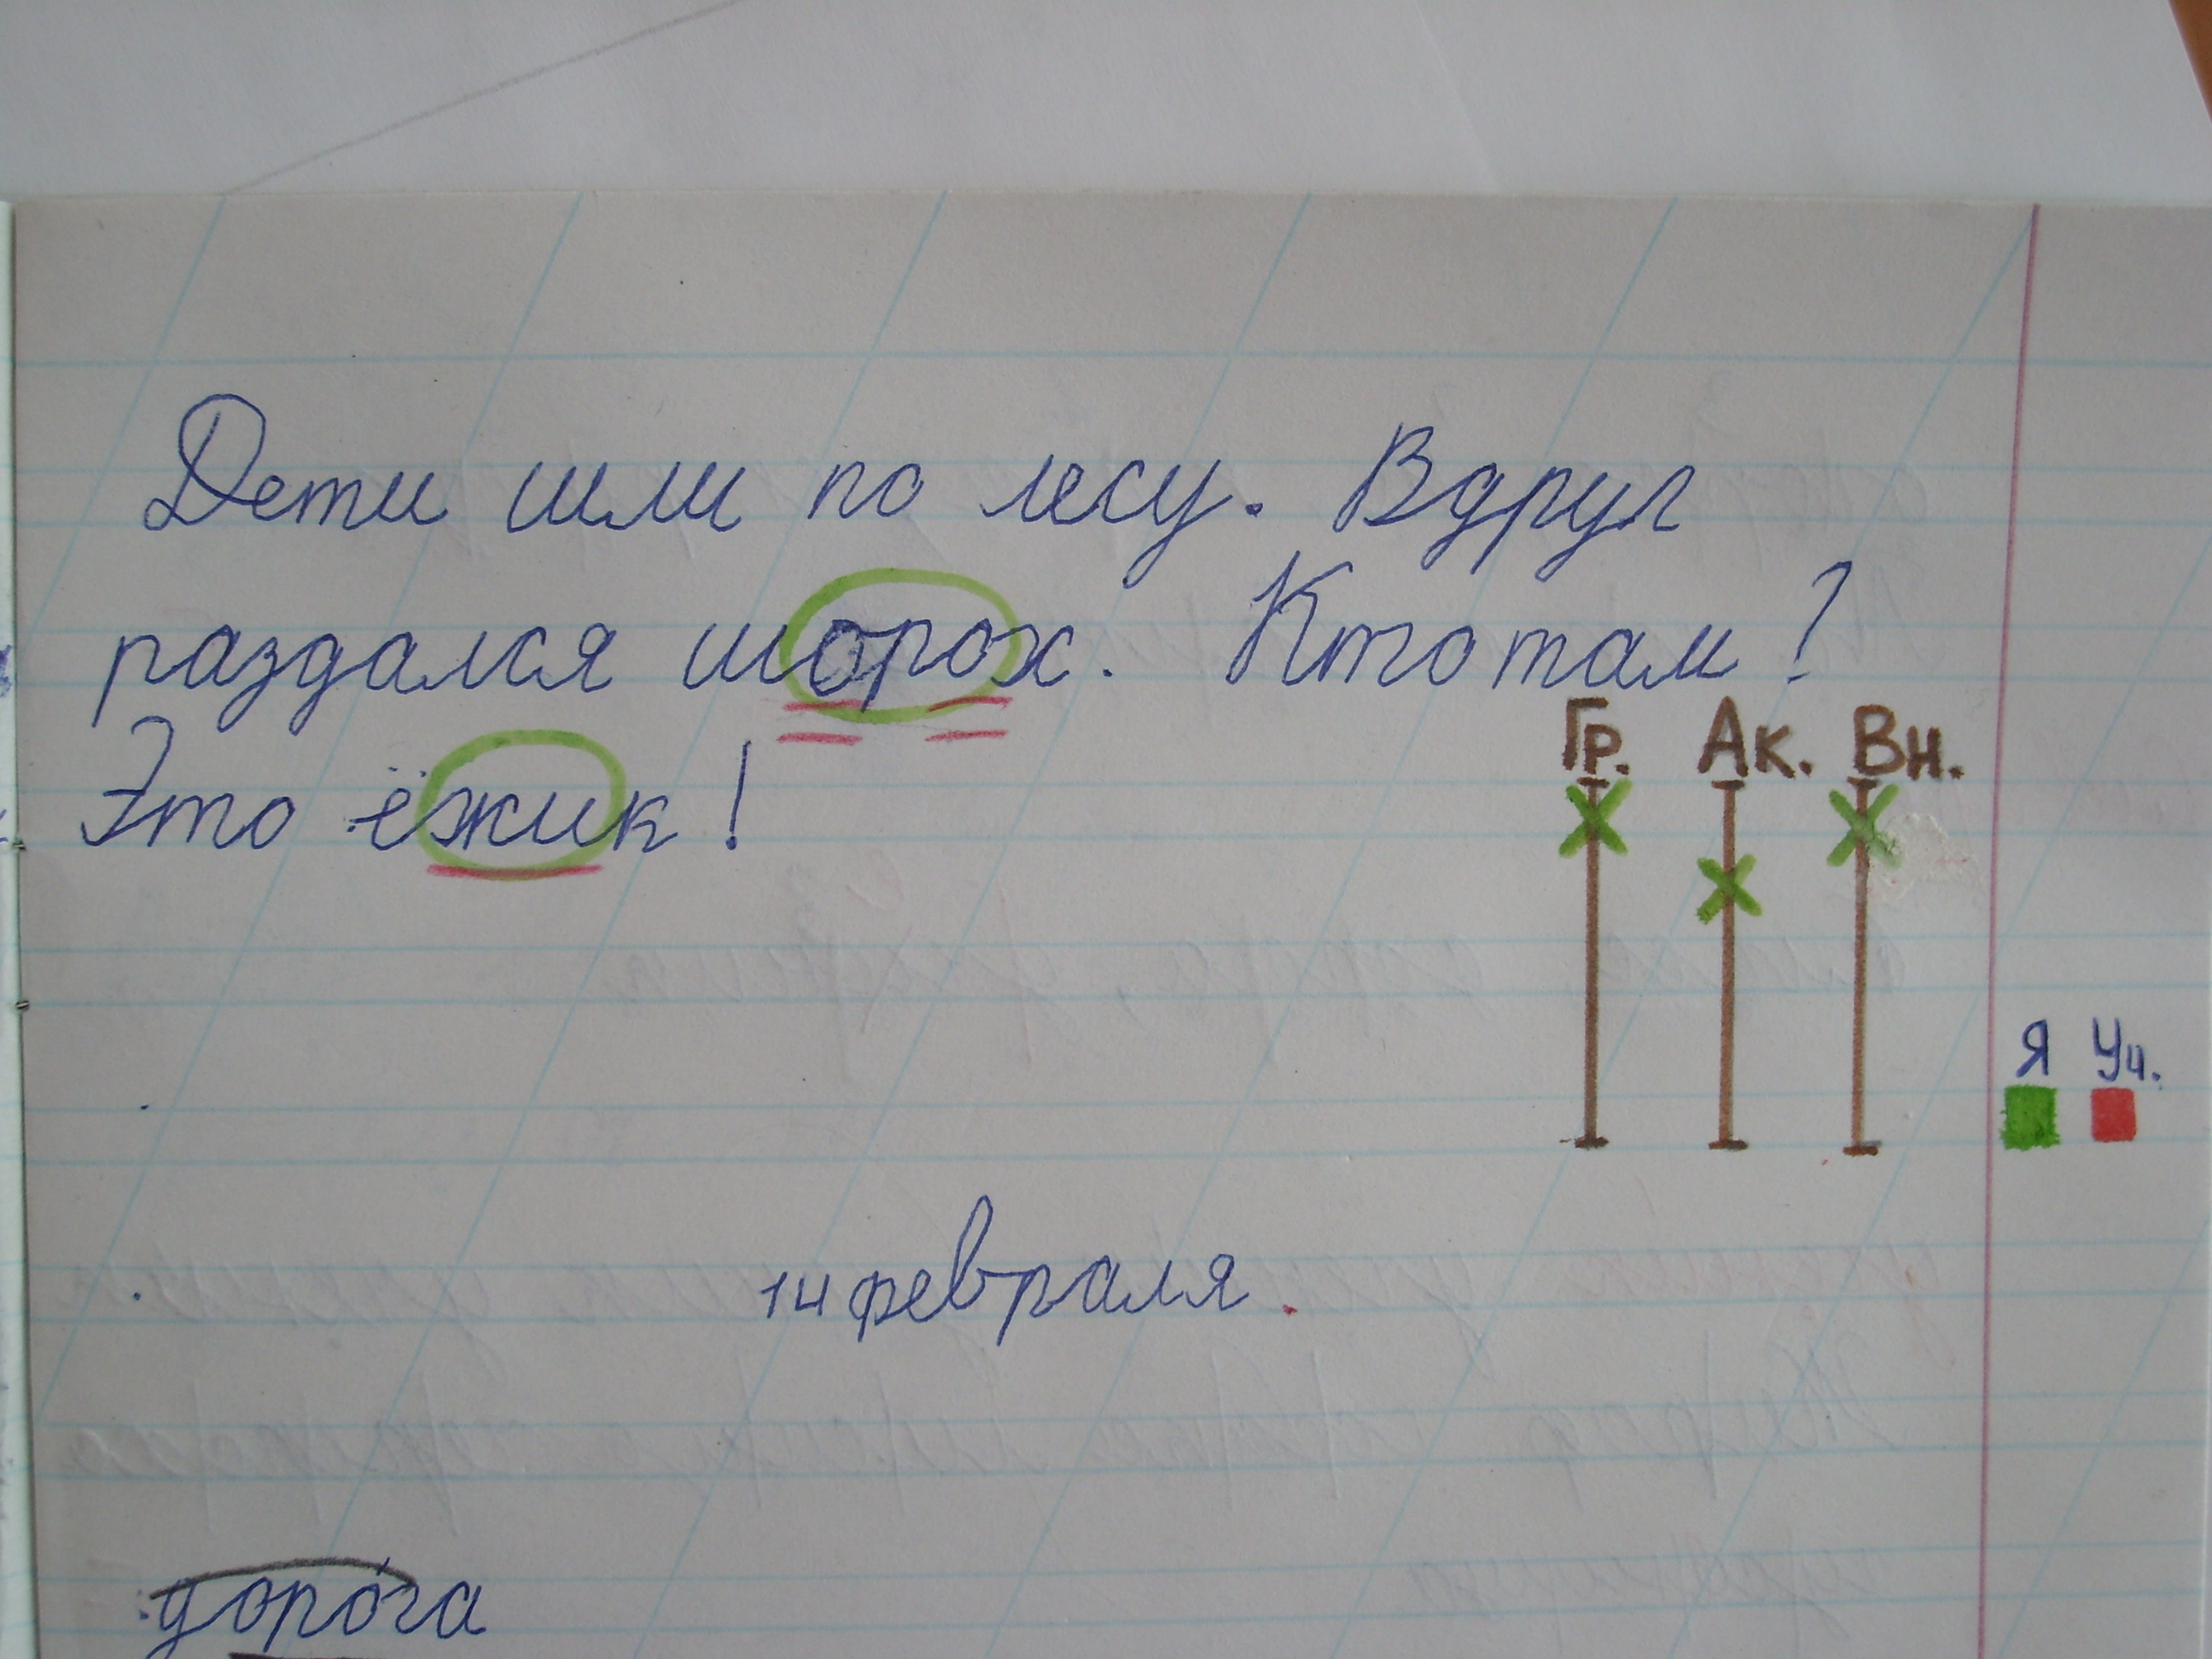 Дети шли по лесу. Вдруг
раздался шорох. Кто там?
Это ёжик!
Гр. Ак. Вн.
Я Уч.
14 февраля.
дорога